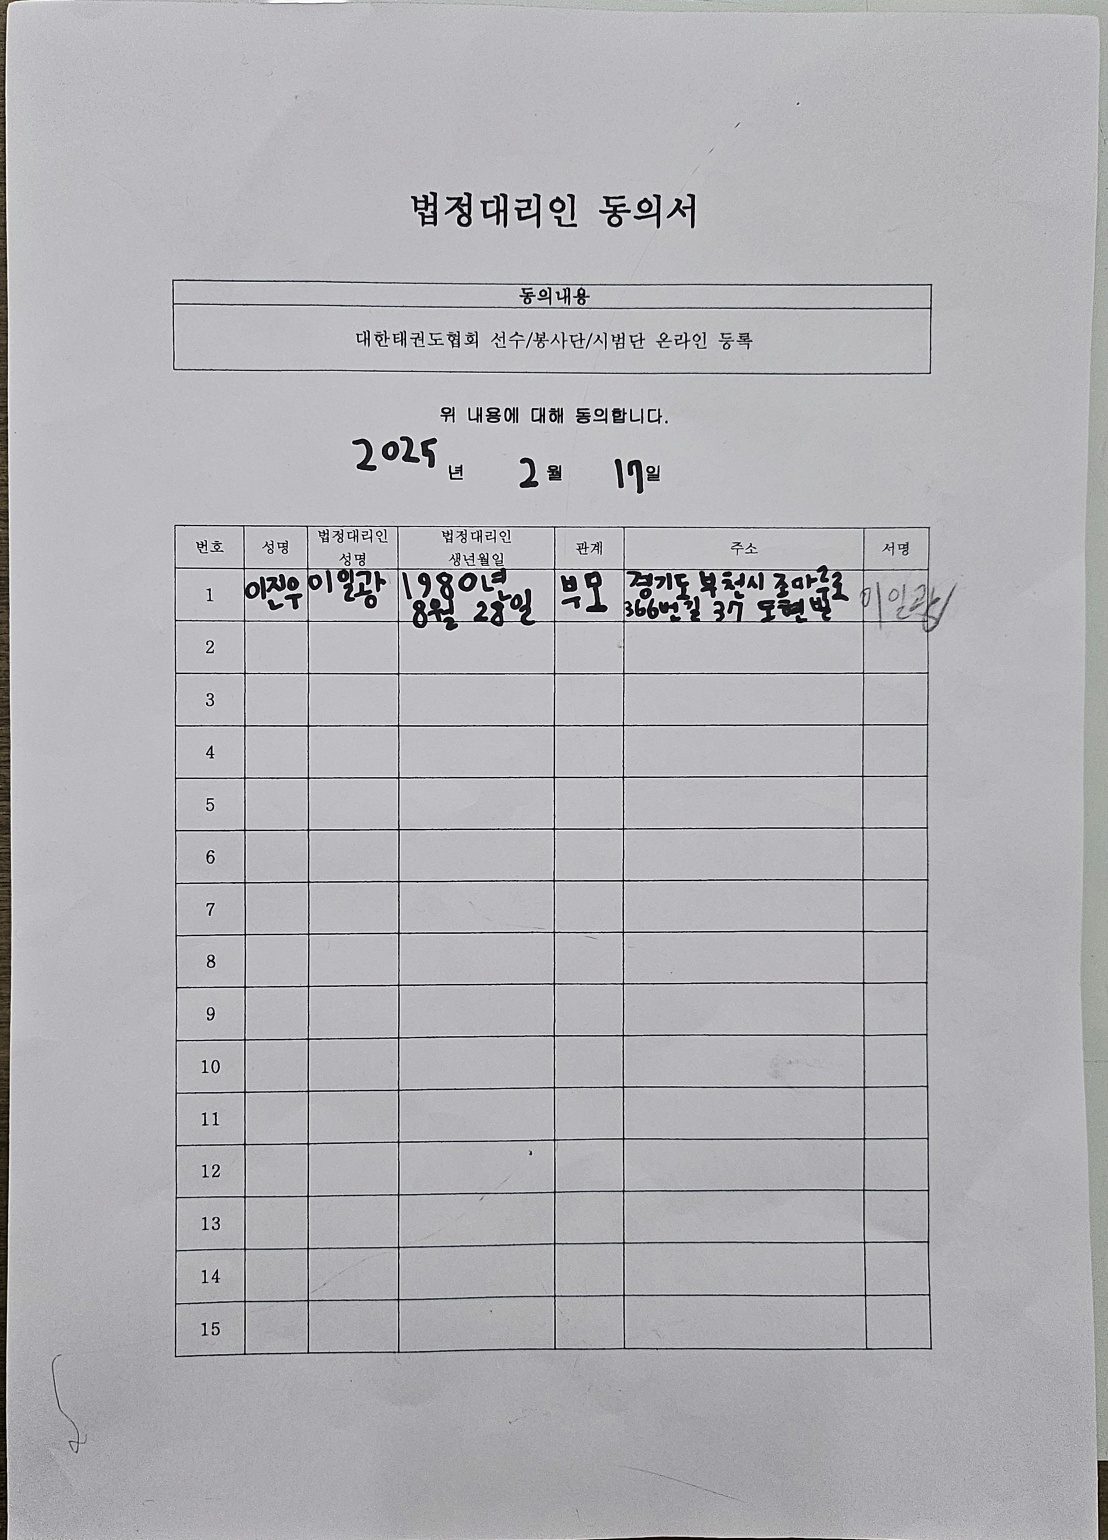 법정대리인 동의서
동의내용
대한태권도협회 선수/봉사단/시범단 온라인 등록
위 내용에 대해 동의합니다.
2025 년 2 월 17 일
번호 성명 법정대리인 성명 법정대리인 생년월일 관계 주소 서명
1 이진우 이일광 1980년 8월 28일 부모 경기도 부천시 조마루로 366번길 37 도현빌 이일광
2
3
4
5
6
7
8
9
10
11
12
13
14
15